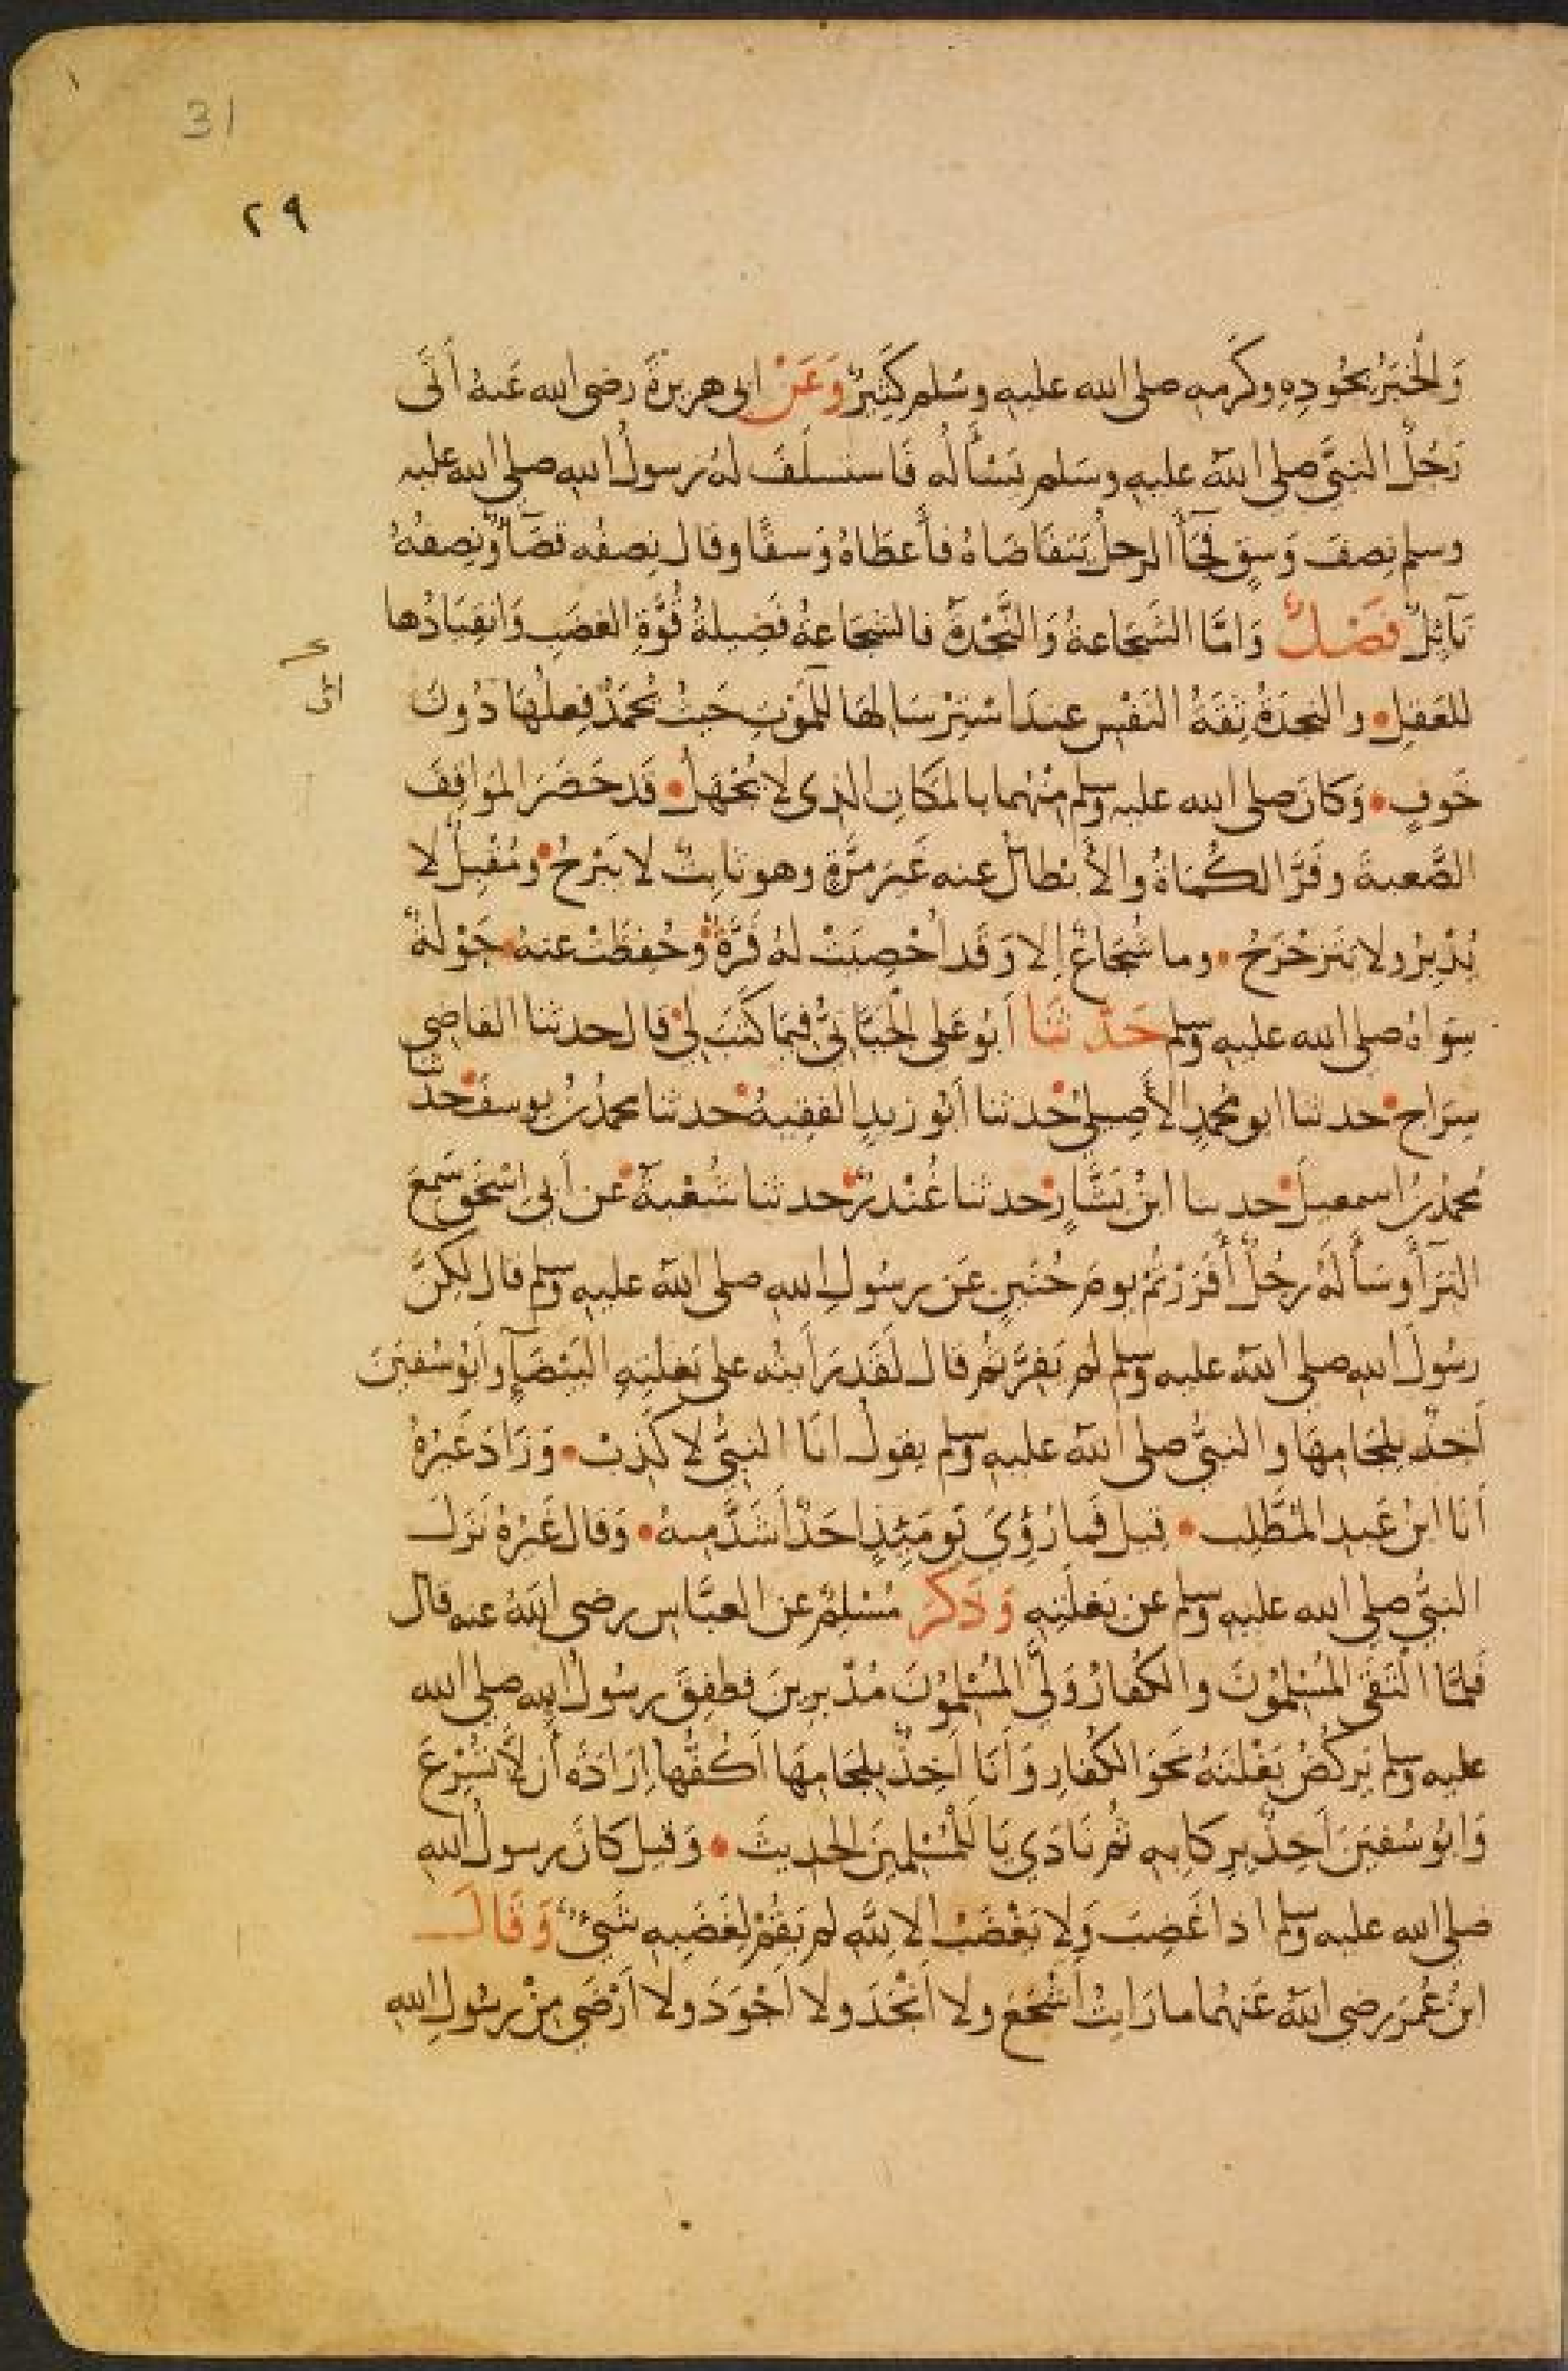 31
٢٩
وَالْخَبَرُ بِجُودِهِ وكَرَمِهِ صلى الله عليه وسلم كَثِيرٌ وَعَنْ ابى هريرةَ رضى الله عَنهُ أَتَى
رَجُلٌ النبىَّ صلى اللهُ عليهِ وسَلم يَسْأَلُه فَاستسلَفَ لهُ رسولُ اللهِ صلى الله عليه
وسلم نِصفَ وَسقٍ فَجَآءَ الرجلُ يَتَقَاضَاهُ فأَعطَاهُ وَسقًا وقال نِصفُه قضَآءٌ وَنِصفُهُ
نَآئِلٌ فَصْلٌ وَامَّا الشَجَاعةُ وَالنَّجْدَةُ فالشجَاعةُ فَضِيلةُ قُوَّةِ الغضَبِ وَانقِيَادُها
للعَقلِ والنجدَةُ ثِقَةُ النَفْسِ عندَ استِرْسَالِهَا للمَوْتِ حَيثُ يُحْمَدُ فِعلُهَا دُونَ
خَوفٍ وَكانَ صلى الله عليه وسلم مِنْهما بالمَكانِ الذى لا يُجْهَلُ قَد حَضَرَ المَوَاقِفَ
الصَّعبةَ وفَرَّ الكُمَاةُ والأَبْطالُ عنه غَيرَ مَرَّةٍ وهو ثَابِتٌ لا يَبْرَحُ ومُقْبِلٌ لا
يُدْبِرُ ولا يَتَزَحْزَحُ وما شُجَاعٌ إلا وَقَد أُحْصِيَتْ لهُ فَرَّةٌ وَحُفِظَتْ عنهُ جَوْلَةٌ
سِوَاهُ صلى الله عليه وسلم حَدَّثَنَا أَبُو عَلى الْجَيَّانِىُّ فِيمَا كَتَبَ لِى قال حدثنا القاضِى
سِرَاج حدثنا ابو مُحمدٍ الأَصِيلىُّ حدثنا أَبُو زيدٍ الفقِيهُ حدثنا محمدُ بنُ يوسفَ حدثنا
مُحمدُ بنُ اسمعيلَ حدثنا ابنُ بَشَّارٍ حدثنا غُنْدَرٌ حدثنا شُعْبةُ عن أَبى اسْحَقَ سَمِعَ
البَرَآءَ وسَأَلَهُ رجُلٌ أَفَرَرْتُمْ يومَ حُنَينٍ عَن رسُولِ اللهِ صلى اللهُ عليهِ وسلم قال لكِنَّ
رسُولَ اللهِ صلى اللهُ عليه وسلم لم يَفِرَّ ثُمَ قال لَقَد رَأَيتُه على بَغلَتِهِ البَيْضَآءِ وأَبُو سُفيَنَ
آخِذٌ بِلِجَامِهَا والنبىُّ صلى اللهُ عليهِ وسلم يقولُ انَا النبىُّ لا كَذِبْ وَزَادَ غَيرُهُ
أَنَا ابنُ عَبدِ المُطَّلِب قيل فَما رُؤِيَ يَومَئِذٍ احَدٌ أَشَدَّ مِنهُ وَقال غَيرُهُ نَزَلَ
النبىُّ صلى الله عليهِ وسلم عن بَغلَتِهِ وَذَكَرَ مُسْلِمٌ عنِ العبَّاسِ رضى اللهُ عنه قال
فَلمَّا الْتَقَى المُسْلِمُونَ والكُفارُ وَلَّى المُسْلِمُونَ مُدْبِرِينَ فطفِقَ رسُولُ اللهِ صلى الله
عليه وسلم يَركُضُ بَغْلتَهُ نَحْوَ الكُفارِ وَأَنَا آخِذٌ بِلِجَامِهَا أَكُفُّهَا إِرَادَةَ أَن لَّا تُسْرِعَ
وَابُو سُفيَنَ آخِذٌ بِرِكابِهِ ثُمَّ نَادَي يَا لَلْمُسْلِمِينَ الحديثَ وَقيل كَانَ رسولُ اللهِ
صَلى الله عليه وسلم اذا غَضِبَ وَلا يَغْضَبُ إلا للهِ لم يَقُمْ لِغَضَبِهِ شَىْءٌ وَقَالَ
ابنُ عُمَرَ رضى اللهُ عَنهُما ما رَايتُ أَشْجَعَ ولا أَنْجَدَ ولا أَجْوَدَ ولا أَرْضَى مِنْ رسُولِ اللهِ